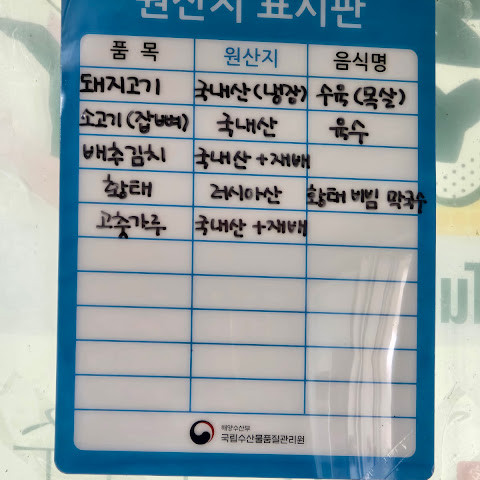 원산지 표시판
품 목 원산지 음식명
돼지고기 국내산(냉장) 수육(목살)
소고기(잡뼈) 국내산 육수
배추김치 국내산+재배
황태 러시아산 황태 비빔 막국수
고춧가루 국내산+재배
해양수산부
국립수산물품질관리원